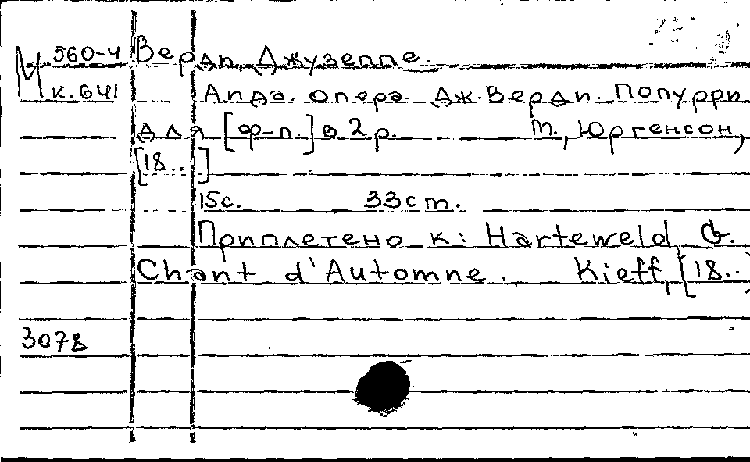 М 560-4 Верди, Джузеппе.
к.641 Аида. Опера Дж. Верди. Попурри
для [ф-п.] в 2 р. М., Юргенсон,
[18..]
15с. 33cm.
Приплетено к: Harteweld, G.
Chant d'Automne. Kieff, [18..]
3078